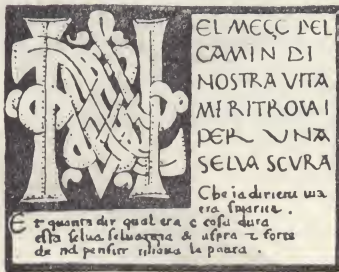 NEL MEÇC DEL
CAMIN DI
NOSTRA VITA
MI RITROVAI
PER VNA
SELVA SCVRA
Che la diricta uia
era smarita.
Et quanto dir qual era e cosa dura
esta selua seluaggia & aspra τ forte
che nel pensier rinoua la paura.